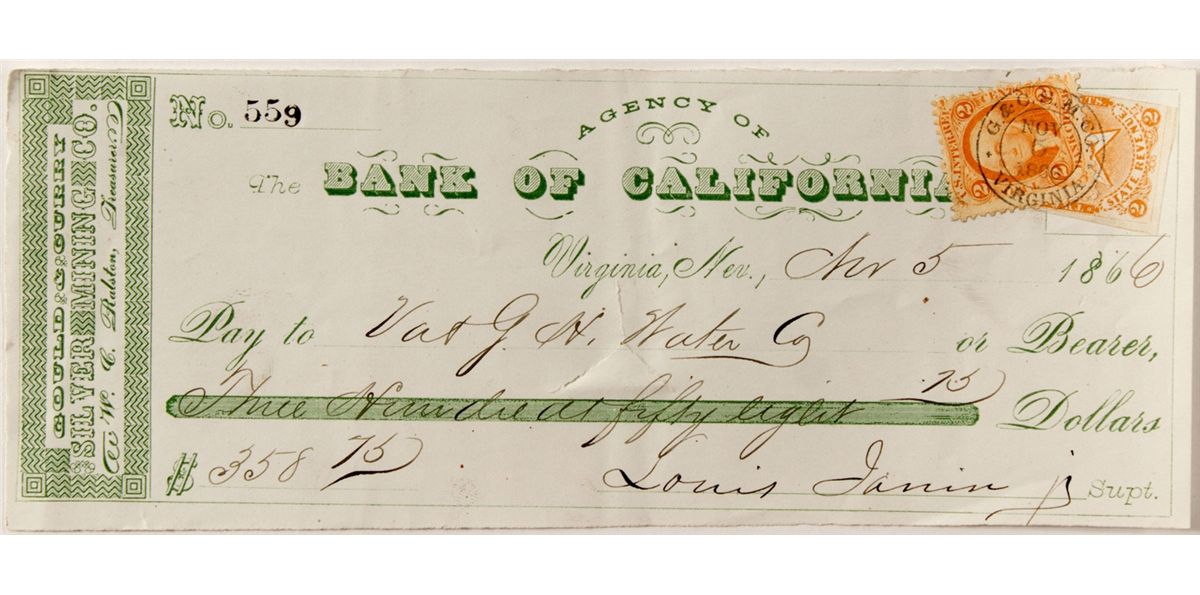 GOULD & CURRY
SILVER MINING CO.
W. C. Ralston, Treasurer
No. 559
AGENCY OF
The BANK OF CALIFORNIA
G. & C. S. M. CO.
NOV
VIRGINIA
2
2
STATE REVENUE
2
Virginia, Nev., Nov 5 1866
Pay to Va & G. H. Water Co or Bearer,
Three Hundred & fifty eight 75 Dollars
$ 358 75
Louis Janin jr Supt.